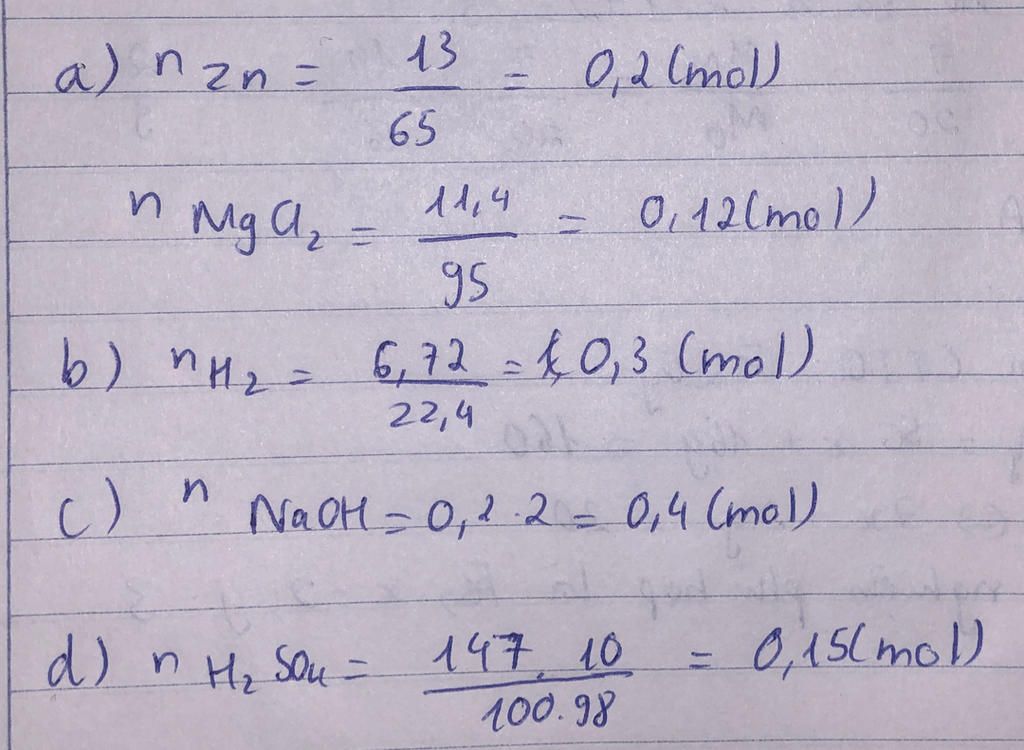 a) n Zn = 13/65 = 0,2 (mol)
n MgCl₂ = 11,4/95 = 0,12 (mol)
b) n H₂ = 6,72/22,4 = 0,3 (mol)
c) n NaOH = 0,2 . 2 = 0,4 (mol)
d) n H₂SO₄ = 147.10/100.98 = 0,15 (mol)